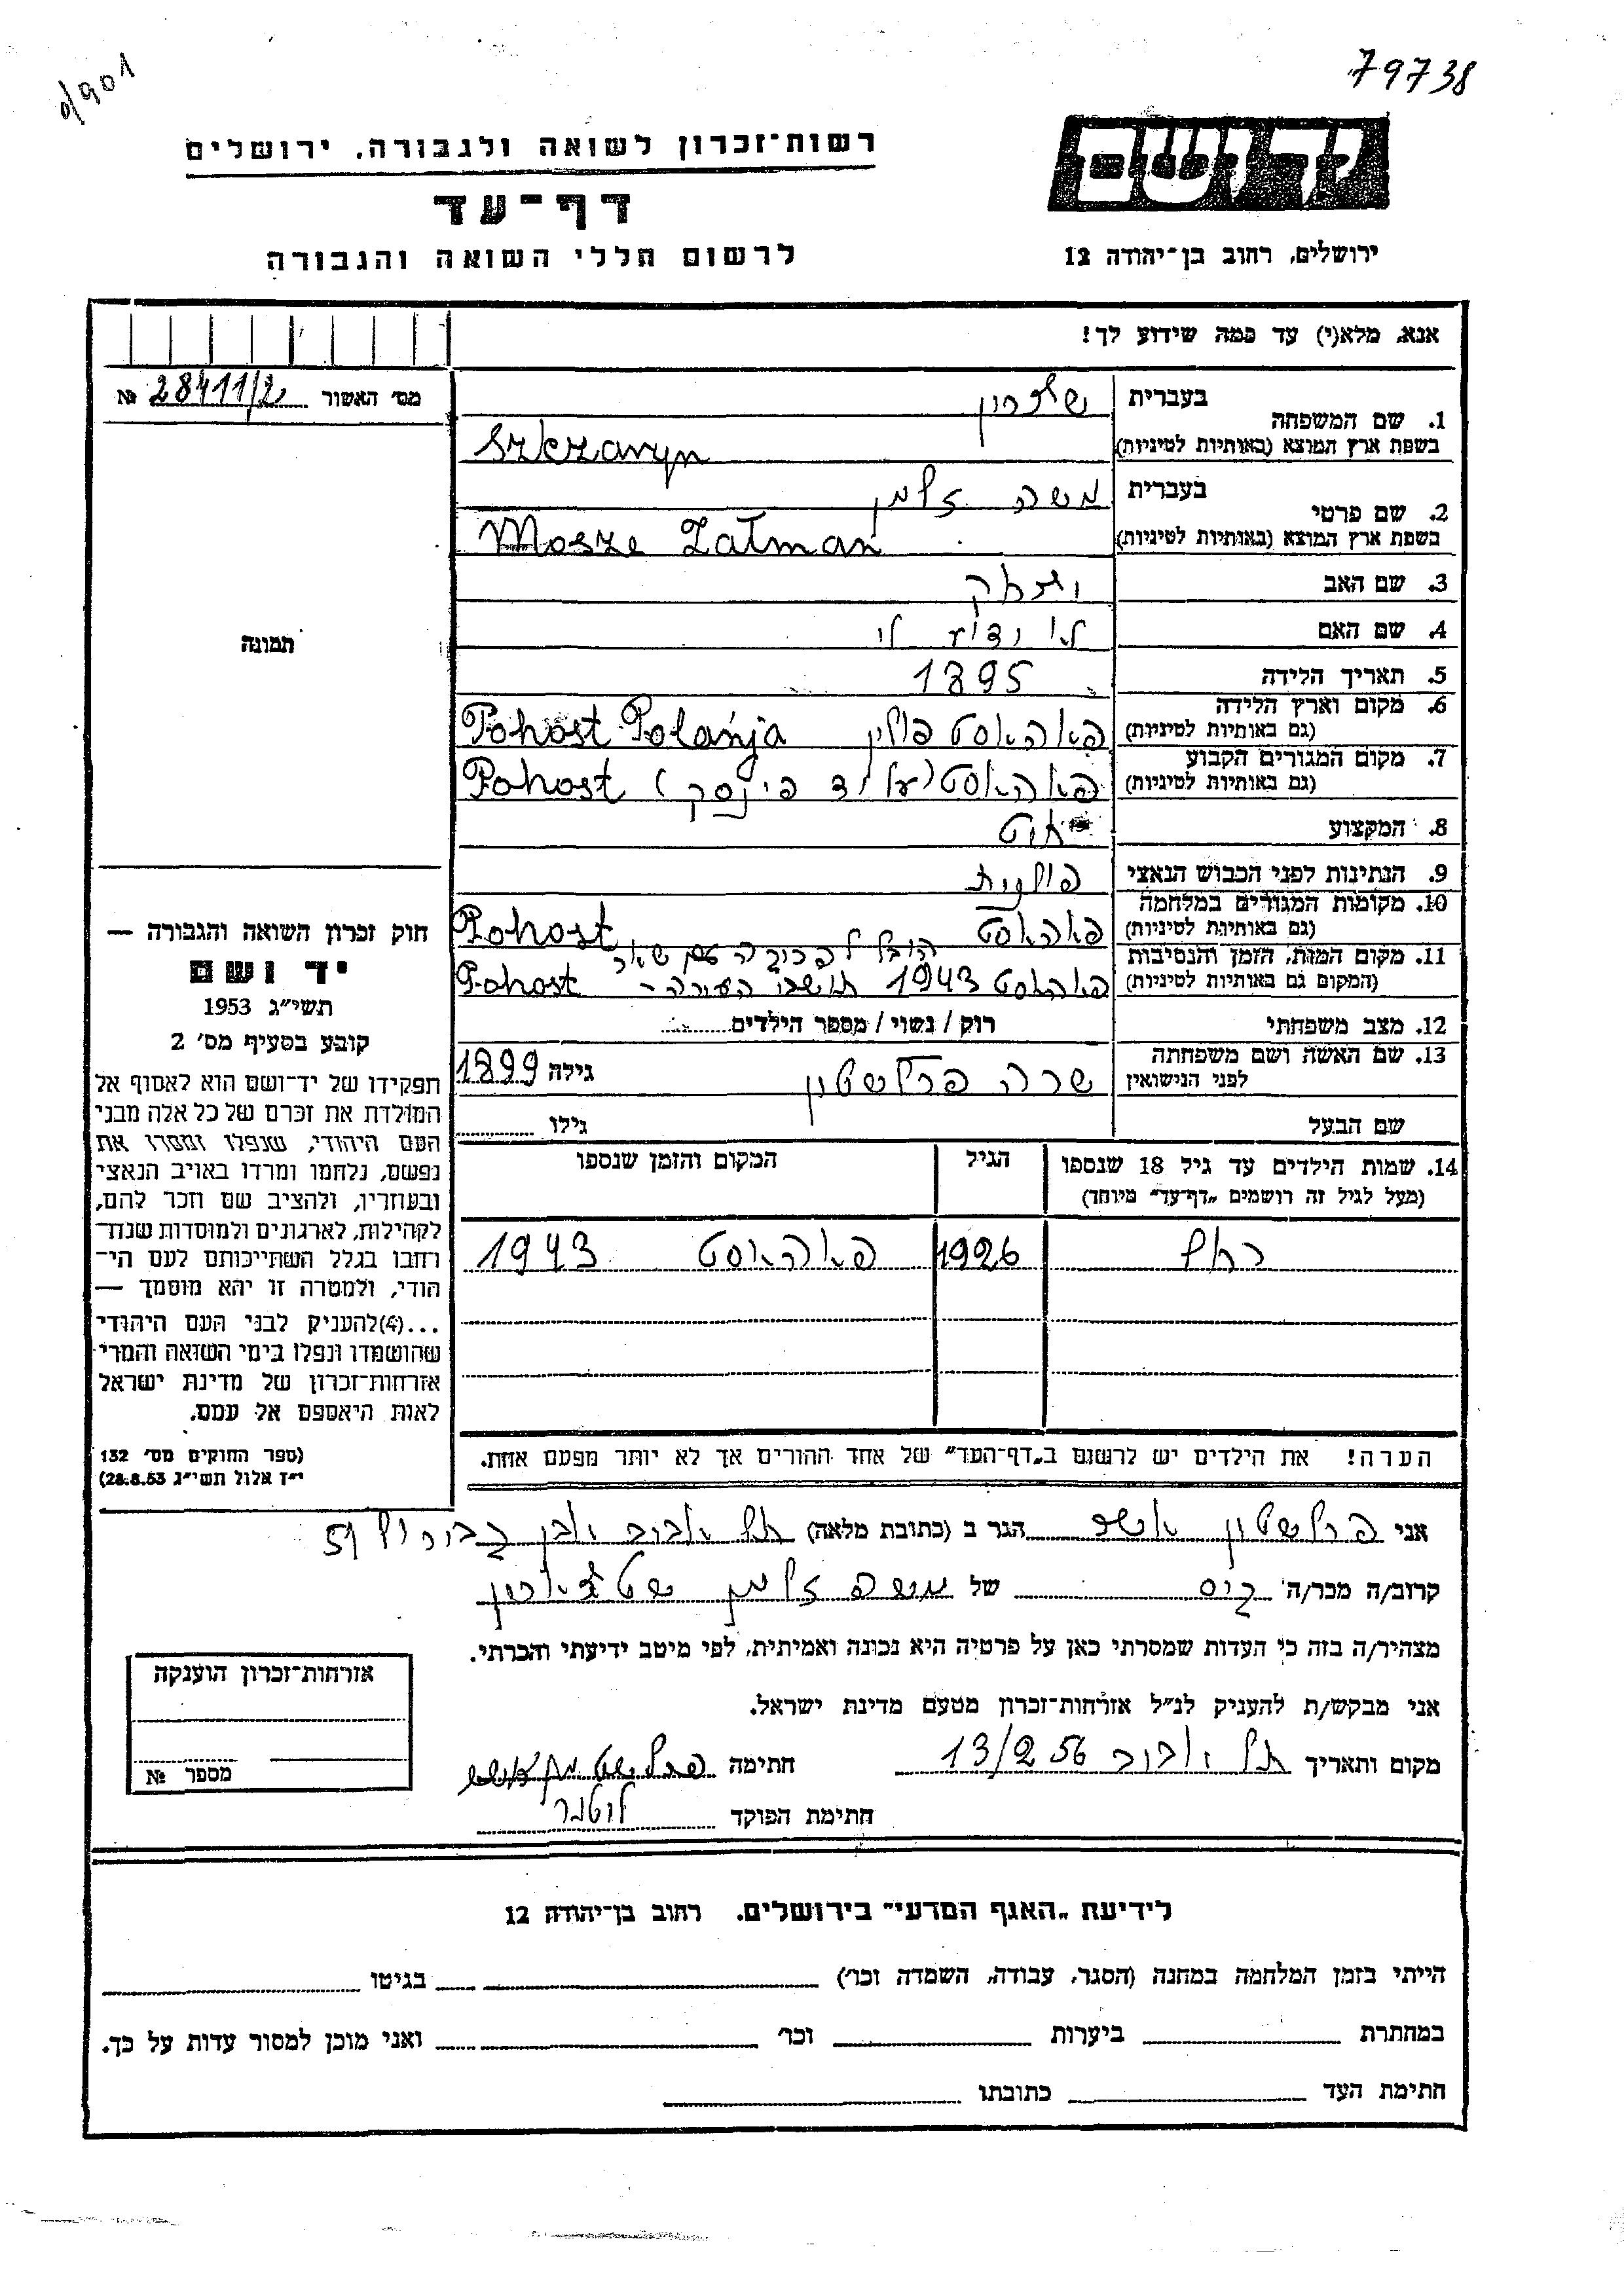 79738
יד ושם
רשות־זכרון לשואה ולגבורה, ירושלים
דף־עד
לרשום חללי השואה והגבורה
ירושלים, רחוב בן־יהודה 12
אנא, מלא(י) עד כמה שידוע לך!
מס׳ האשור 28411/2 №
1. שם המשפחה
בעברית
בשפת ארץ המוצא (באותיות לטיניות) Szkzaryn
2. שם פרטי
בעברית משה זלמן
בשפת ארץ המוצא (באותיות לטיניות) Mosze Zalman
3. שם האב יצחק
4. שם האם לא ידוע לי
5. תאריך הלידה 1895
6. מקום וארץ הלידה
(גם באותיות לטיניות) פאהאסט פולין Pohost Polańja
7. מקום המגורים הקבוע
(גם באותיות לטיניות) פאהאסט (על יד פינסק) Pohost
8. המקצוע
9. הנתינות לפני הכבוש הנאצי פולנית
10. מקומות המגורים במלחמה
(גם באותיות לטיניות) פאהאסט Pohost
11. מקום המות, הזמן והנסיבות הובל
(המקום גם באותיות לטיניות) פאהאסט 1943 תושבי העירה – Pohost
12. מצב משפחתי רוק / נשוי / מספר הילדים
13. שם האשה ושם משפחתה
לפני הנישואין שרה פרלשטין גילה 1899
שם הבעל גילו
14. שמות הילדים עד גיל 18 שנספו
(מעל לגיל זה רושמים „דף־עד״ מיוחד)
הגיל
המקום והזמן שנספו
1926 פאהאסט 1943
הערה! את הילדים יש לרשום ב„דף־העד״ של אחד ההורים אך לא יותר מפעם אחת.
תמונה
חוק זכרון השואה והגבורה —
יד ושם
תשי״ג 1953
קובע בסעיף מס׳ 2
תפקידו של יד־ושם הוא לאסוף אל
המולדת את זכרם של כל אלה מבני
העם היהודי, שנפלו ומסרו את
נפשם, נלחמו ומרדו באויב הנאצי
ובעוזריו, ולהציב שם וזכר להם,
לקהילות, לארגונים ולמוסדות שנח־
רחבו בגלל השתייכותם לעם הי־
הודי, ולמטרה זו יהא מוסמך —
...(4)להעניק לבני העם היהודי
שהושמדו ונפלו בימי השואה והמרי
אזרחות־זכרון של מדינת ישראל
לאות היאספם אל עמם.
(ספר החוקים מס׳ 132
י״ז אלול תשי״ג 28.8.53)
אני פרלשטין אשר הגר ב (כתובת מלאה) תל אביב אבן גבירול 51
קרוב/ה מכר/ה גיס של משה זלמן
מצהיר/ה בזה כי העדות שמסרתי כאן על פרטיה היא נכונה ואמיתית, לפי מיטב ידיעתי והכרתי.
אני מבקש/ת להעניק לנ״ל אזרחות־זכרון מטעם מדינת ישראל.
מקום ותאריך תל אביב 13/2 56 חתימה
חתימת הפוקד
אזרחות־זכרון הוענקה
מספר №
לידיעת „האגף המדעי״ בירושלים. רחוב בן־יהודה 12
הייתי בזמן המלחמה במחנה (הסגר, עבודה, השמדה וכו׳) בגיטו
במחתרת ביערות וכו׳ ואני מוכן למסור עדות על כך.
חתימת העד כתובתו